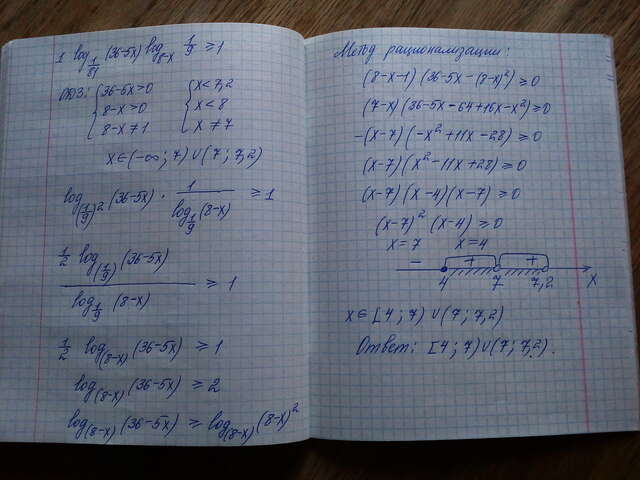 1 log_{1/81}(36-5x) log_{8-x} 1/9 ≥ 1
ОДЗ: { 36-5x>0 { x<7,2
8-x>0 x<8
8-x≠1 x≠7
x∈(-∞; 7)∪(7; 7,2)
log_{(1/9)^2}(36-5x) · 1/(log_{1/9}(8-x)) ≥ 1
(1/2 log_{(1/9)}(36-5x))/(log_{1/9}(8-x)) ≥ 1
1/2 log_{(8-x)}(36-5x) ≥ 1
log_{(8-x)}(36-5x) ≥ 2
log_{(8-x)}(36-5x) ≥ log_{(8-x)}(8-x)^2
Метод рационализации:
(8-x-1)(36-5x-(8-x)^2) ≥ 0
(7-x)(36-5x-64+16x-x^2) ≥ 0
-(x-7)(-x^2+11x-28) ≥ 0
(x-7)(x^2-11x+28) ≥ 0
(x-7)(x-4)(x-7) ≥ 0
(x-7)^2 (x-4) ≥ 0
x=7 x=4
- + +
4 7 7,2 x
x∈[4; 7)∪(7; 7,2)
Ответ: [4; 7)∪(7; 7,2).